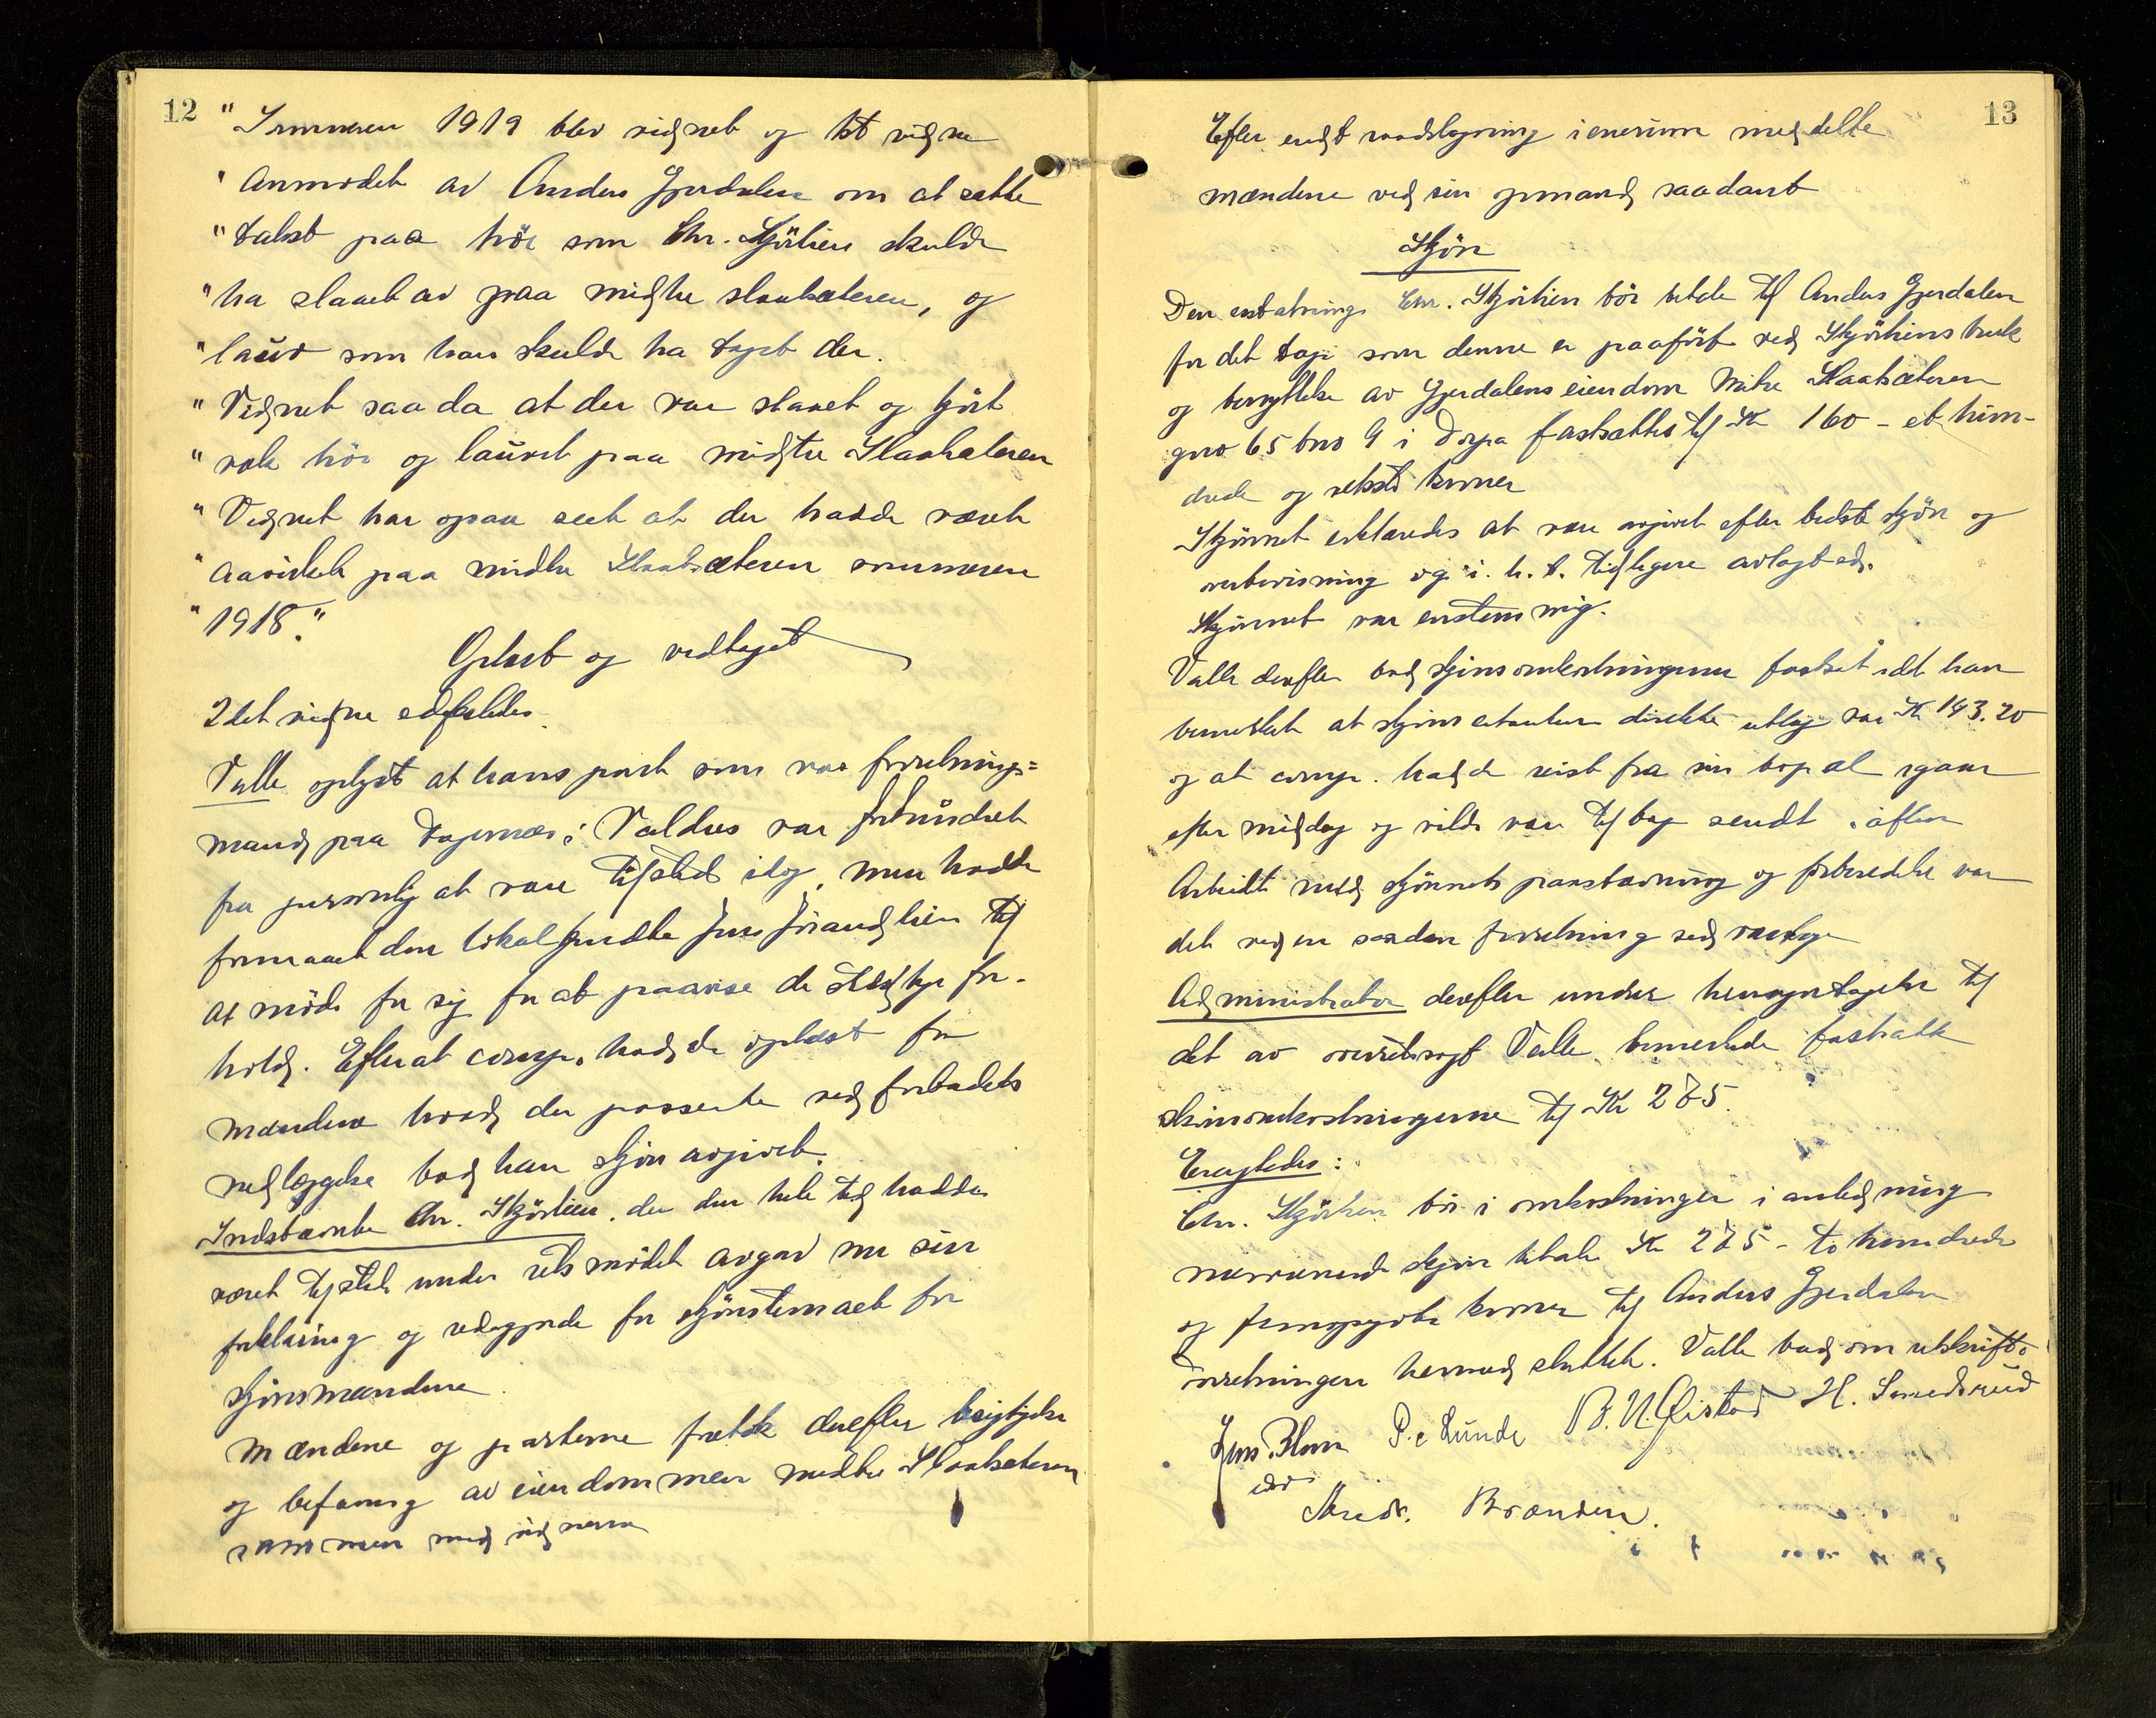 12
" Sommeren 1919 blev vidnet og 1st vidne
" anmodet av Anders Gjerdalen om at sætte
" takst paa höi som Chr. Skjörlien skulde
" ha slaaet av paa midtre Slaatsæteren, og
" lauv som han skulde ha taget der.
" Vidnet saa da at der var slaaet og kjört
" væk höi og lauvet paa midtre Slaatsæteren
" Vidnet har ogsaa seet at der hadde været
" aavirket paa midtre Slaatsæteren sommeren
" 1918."
Oplæst og vedtaget
2det vidne edfæstedes.
Valle oplyst at hans part som var forretnings=
mand paa Fagernes i Valdres var forhindret
fra personlig at være tilstede idag, men hadde
formaaet den lokalkjendte Jens Jörandlien til
at möde for sig for at paavise de stedlige for-
hold. Efterat comp. hadde oplæst for
mændene hvad der passerte ved forbudets
nedlæggelse bad han skjön avgivet.
Indstævnte Chr. Skjörlien, der den hele tid hadde
været tilstede under retsmödet avgav nu sin
forklaring og redegjorde for skjönstemaet for
skjönsmændene.
Mændene og parterne foretok derefter besigtigelse
og befaring av eiendommen midtre Slaatsæteren
sammen med vidnerne
13
Efter endt raadslagning i enerum meddelte
mændene ved sin opmand saadant
Skjön
Den erstatning Chr. Skjörlien bör betale til Anders Gjerdalen
for det tap som denne er paafört ved Skjörliens bruk
og benyttelse av Gjerdalens eiendom Mitre Slaatsæteren
gno 65 bno 9 i Torpa fastsættes til Kr 160 - et hun-
drede og seksti kroner
Skjönnet erklæredes at være avgivet efter bedste skjön og
overbevisning og i h. t. tidligere avlagt ed.
Skjönnet var enstemmig.
Valle derefter bad skjönsomkostningerne fastsat idet han
bemerket at skjönsretens direkte utlæg var Kr 193.20
og at comp. hadde reist fra sin bopæl igaar
eftermiddag og vilde være tilbage sendt iaften
Arbeidet med skjönnets paastævning og forberedelse var
det ved en saadan forretning sedvanlige
Administrator derefter under hensyntagen til
det av overretssagf. Valle bemerkede fastsatte
skjönsomkostningerne til Kr 285.
Eragtedes:
Chr. Skjörlien bör i omkostninger i anledning
nærværende skjön betale Kr 285 - to hundrede
og femogotti kroner til Anders Gjerdalen
Forretningen hermed sluttet. Valle bad om utskrift.
Jens Blom P. Lunde B. N. Öistad H. Smedsrud
Andr. Brænden.